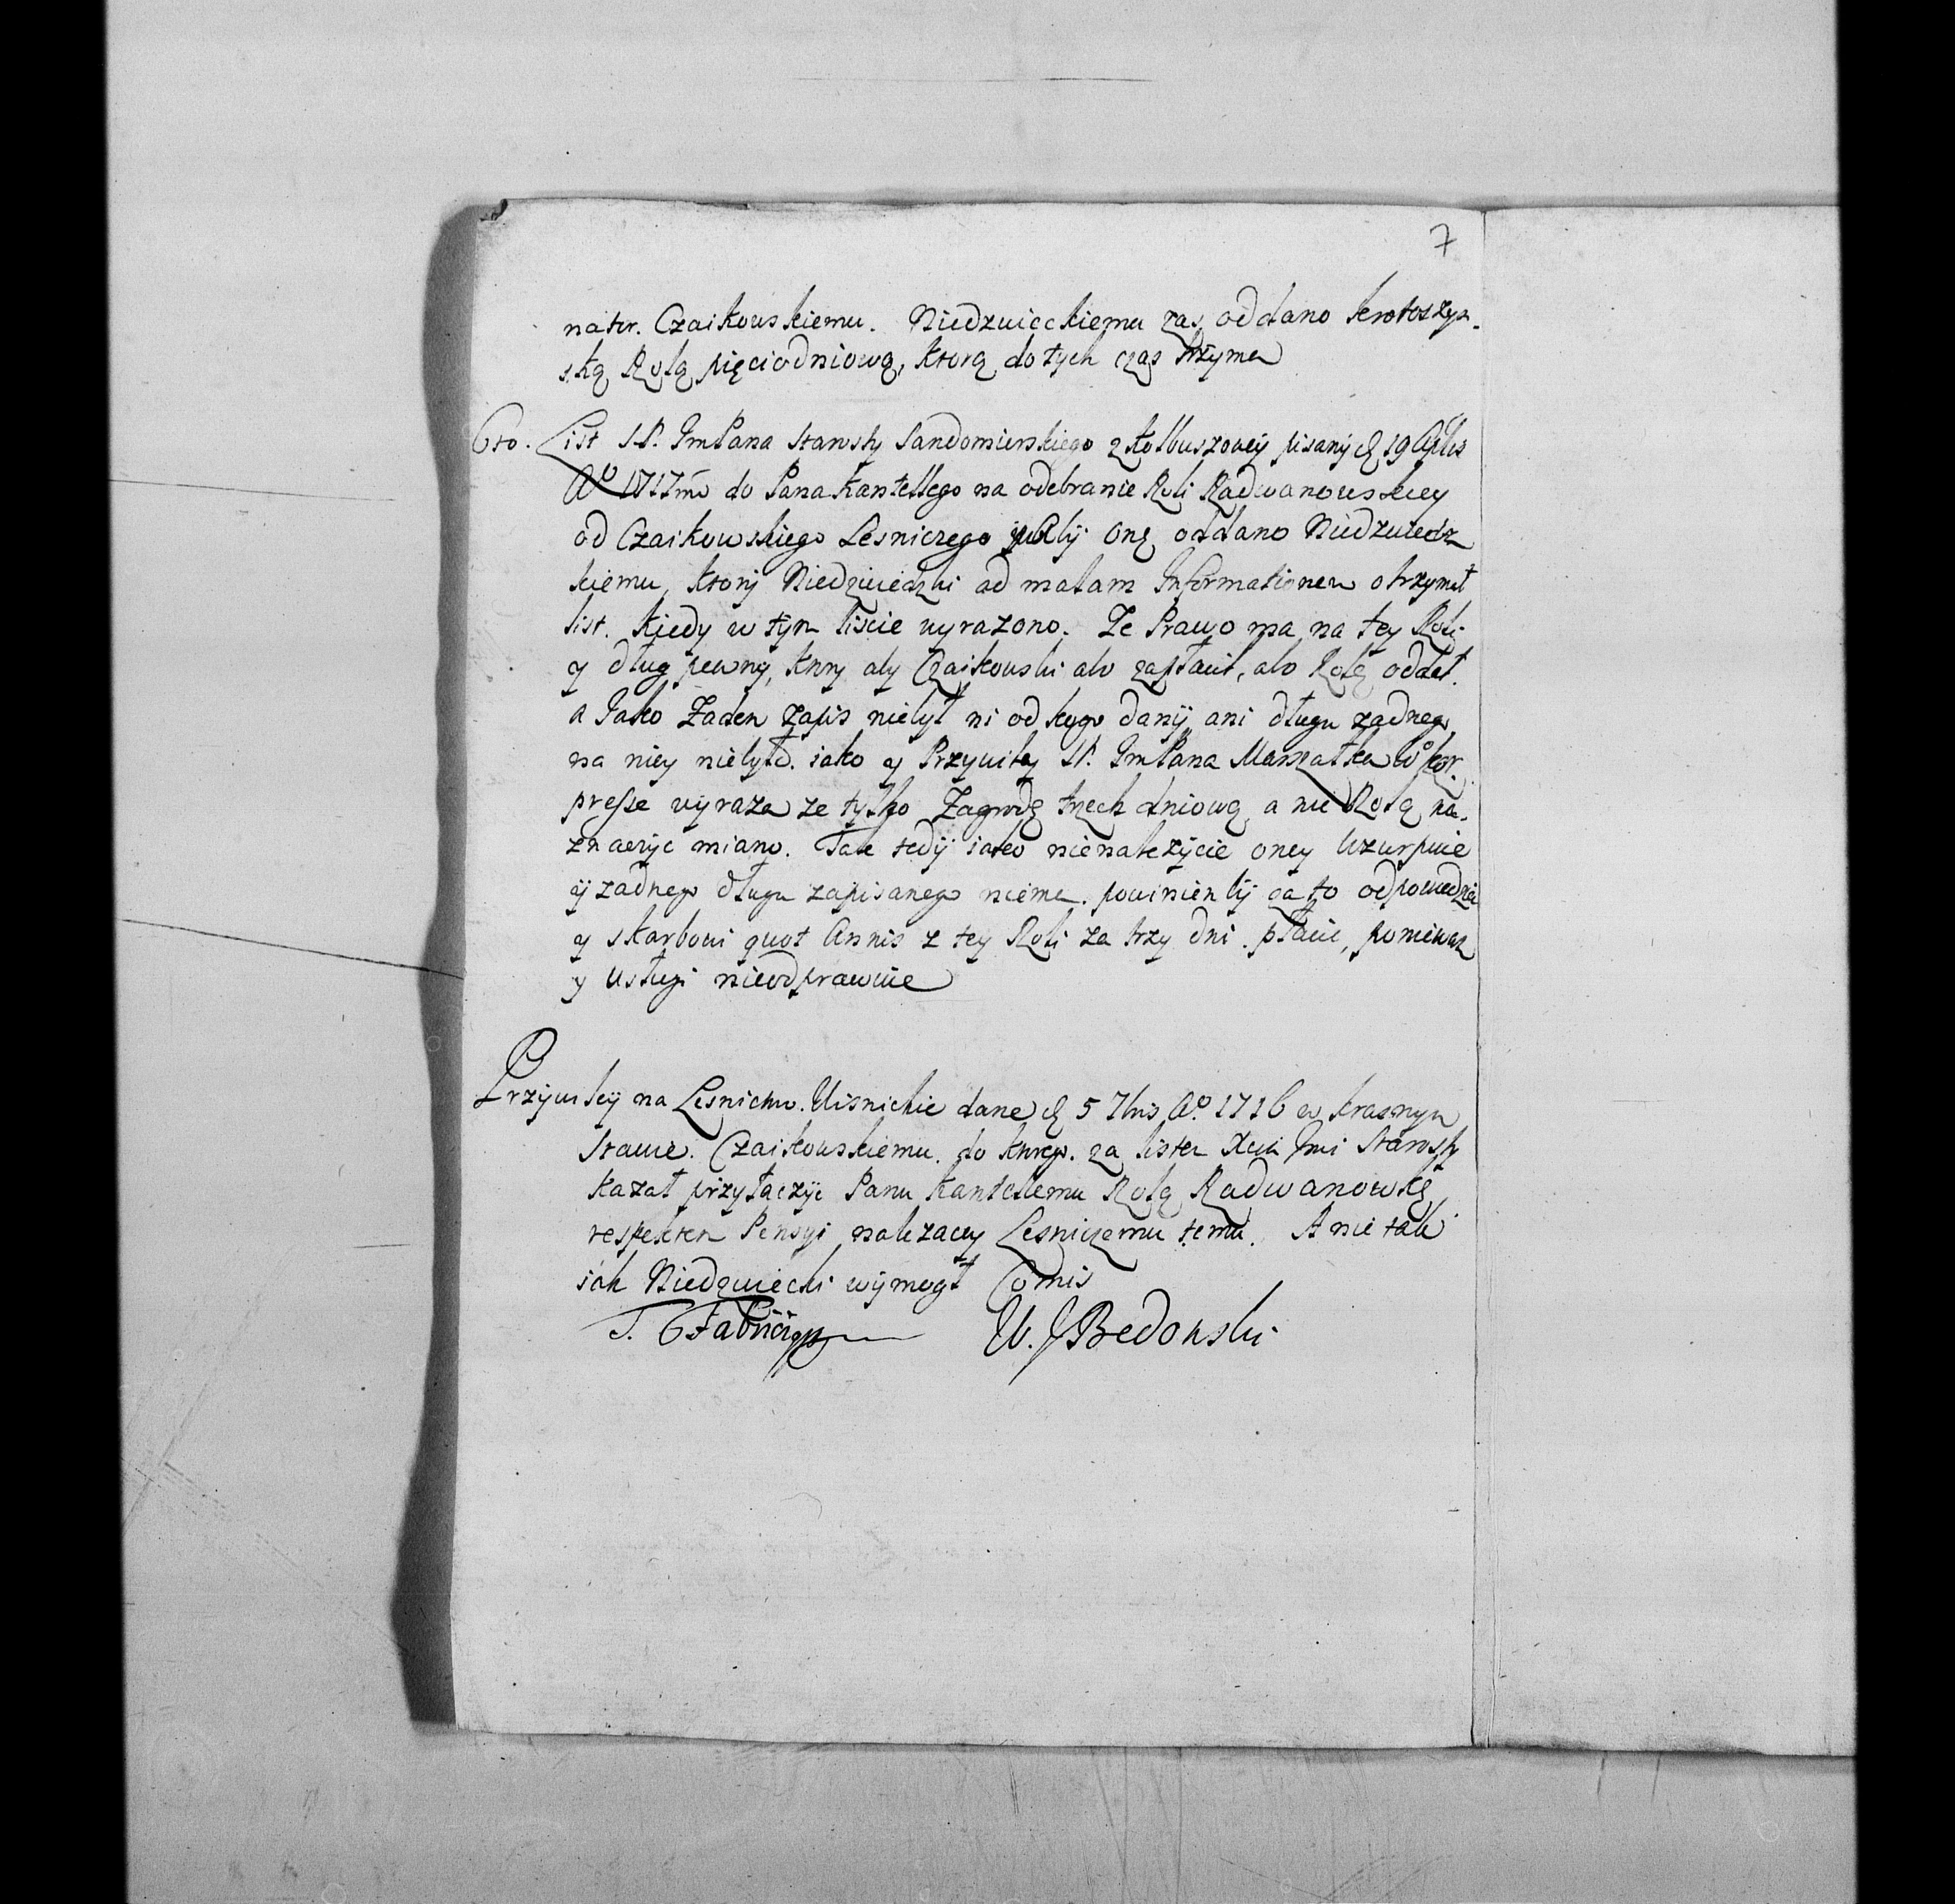 7
natr. Czaikowskiemu. Niedzwieckiemu zas oddano krotoszyn-
ską Rolą pięciodniową, ktorą do tych czas trzyma
6to. List S.P. JmPana Starosty Sandomirskiego z Kolbuszowey pisany d. 19 Aplis
Ao 1717mo do Pana Kantellego na odebranie Roli Radwanowskiey
od Czaikowskiego Lesniczego żeby onę oddano Niedzwiedz
kiemu, ktory Niedzwiedzki ad malam Informationem otrzymał
list. Kiedy w tym liscie wyrazono. Ze Prawo ma na tey Roli
y dług pewny, ktory aby Czaikowski abo zapłacił, abo Rolę oddał.
a Jako Zaden zapis niebył ni od kogo dany ani długu zadnego
na niey niebyło. iako y Przywiley S.P. JmPana Marszałka Wo kor.
presse wyraza ze tylko Zagrodę trzech dniową, a nie Rolą na-
znaczyc miano. Tak tedy iako nienalezycie oney Uzurpuie
y zadnego długu zapisanego niema. powinienby za to odpowiedziec
y skarbowi quot Annis z tey Roli za trzy dni. płacic, poniewaz
y usługi nieodprawuie
Przywiley na Lesnictwo. Wisnickie dane d. 5 7bris Ao. 1716 w krasnym
stawie. Czaikowskiemu. do ktorego. za listem Xcia Jmi Starosty
kazał przyłączyc Panu Kantellemu Rolą Radwanowską
respektem Pensyi nalezacey Lesniczemu temu. A nie tak
iak Niedzwiecki wymogł Comis
W. J Bedonski